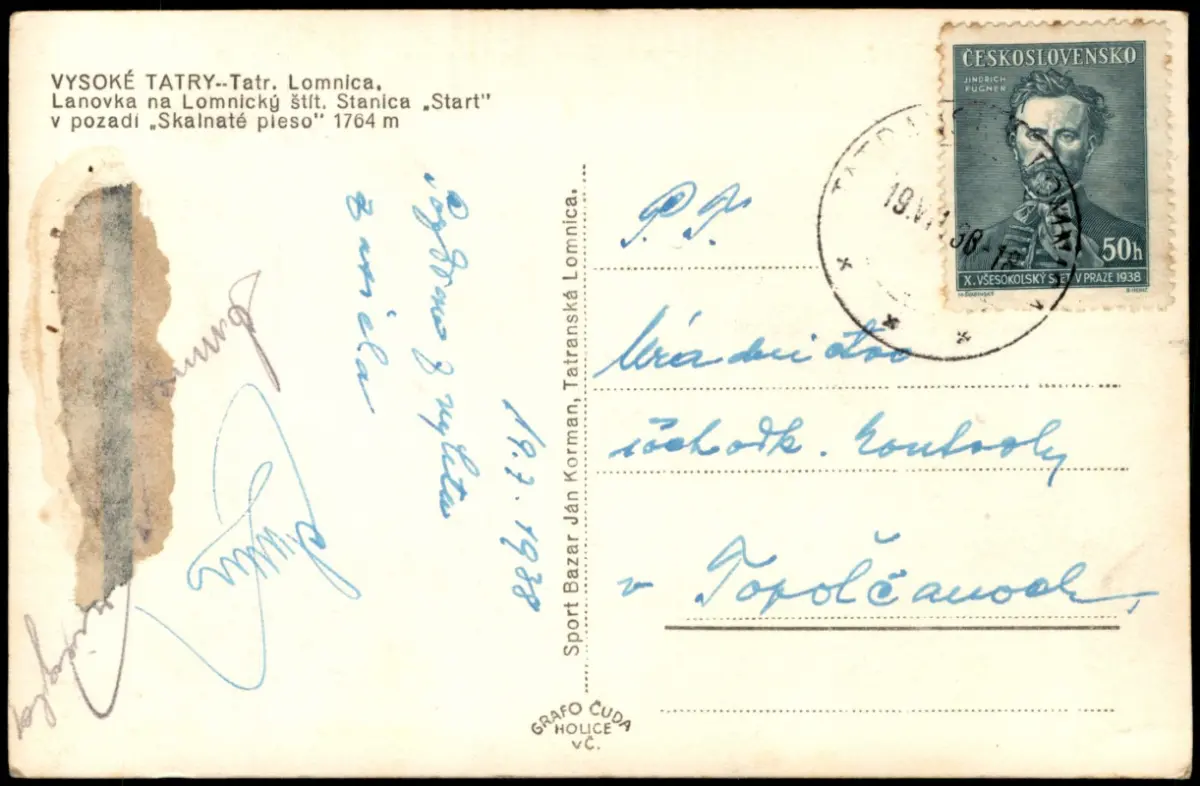 VYSOKÉ TATRY--Tatr. Lomnica.
Lanovka na Lomnický štít. Stanica „Start"
v pozadí „Skalnaté pleso" 1764 m
ČESKOSLOVENSKO
JINDŘICH
FÜGNER
50h
X. VŠESOKOLSKÝ SLET V PRAZE 1938
TATRANSKÁ LOMNICA
19.VII.38-18
Pozdrav z výletu
zasiela
19.7.1938
Sport Bazar Ján Korman, Tatranská Lomnica.
P. T.
Úradníctvo
důchodk. kontroly
v Topolčanoch,
GRAFO ČUDA
HOLICE
VČ.